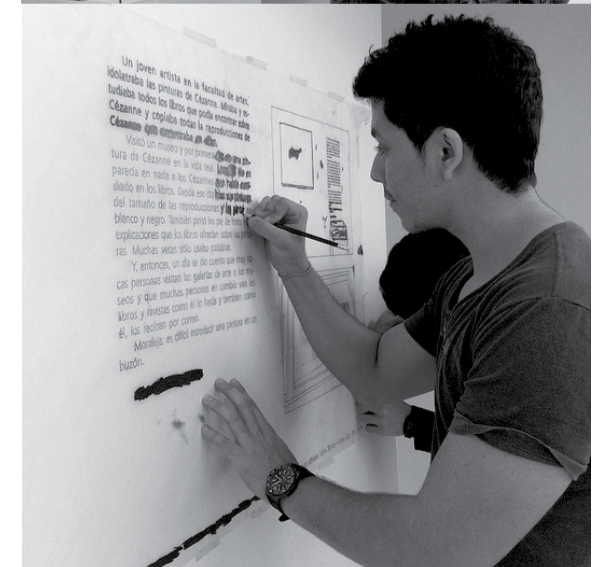 Un joven artista en la facultad de artes,
idolatraba las pinturas de Cézanne. Miraba y es-
tudiaba todos los libros que podía encontrar sobre
Cézanne y copiaba todas la reproducciones de
Cézanne que encontraba en ellos.
Visitó un museo y por primera vez vio una pin-
tura de Cézanne en la vida real. Lo odió. No se
parecía en nada a los Cézannes que había estu-
diado en los libros. Desde ese día
del tamaño de las reproducciones y las pintó
blanco y negro. También pintó los pie de fotos,
explicaciones que los libros ofrecían sobre las pintu-
ras. Muchas veces sólo usaba palabras.
Y, entonces, un día se dio cuenta que muy po-
cas personas visitan las galerías de arte o los mu-
seos y que muchas personas en cambio ven los
libros y revistas como él lo hacía y también como
él, los reciben por correo.
Moraleja: es difícil introducir una pintura en un
buzón.